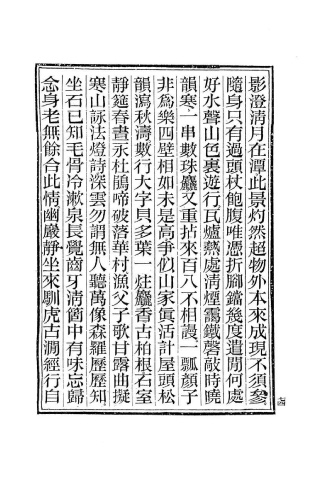 影澄淸月在潭此景灼然超物外本來成現不須參
隨身只有過頭杖飽腹唯憑折腳鐺幾度遣閒何處
好水聲山色裏遊行瓦爐熱處淸煙靄鐵磬敲時曉
韻寒一串數珠麤又重拈來百八不相謾一瓢顏子
非爲樂四壁相如未是高爭似山家眞活計屋頭松
韻瀉秋濤數行大字貝多葉一炷麤香古柏根石室
靜筵春晝永杜鵑啼破落華村漁父子歌甘露曲擬
寒山詠法燈詩深雲勿謂無人聽萬像森羅歷歷知
坐石已知毛骨冷漱泉長覺齒牙淸箇中有味忘歸
念身老無餘合此情幽巖靜坐來馴虎古澗經行自